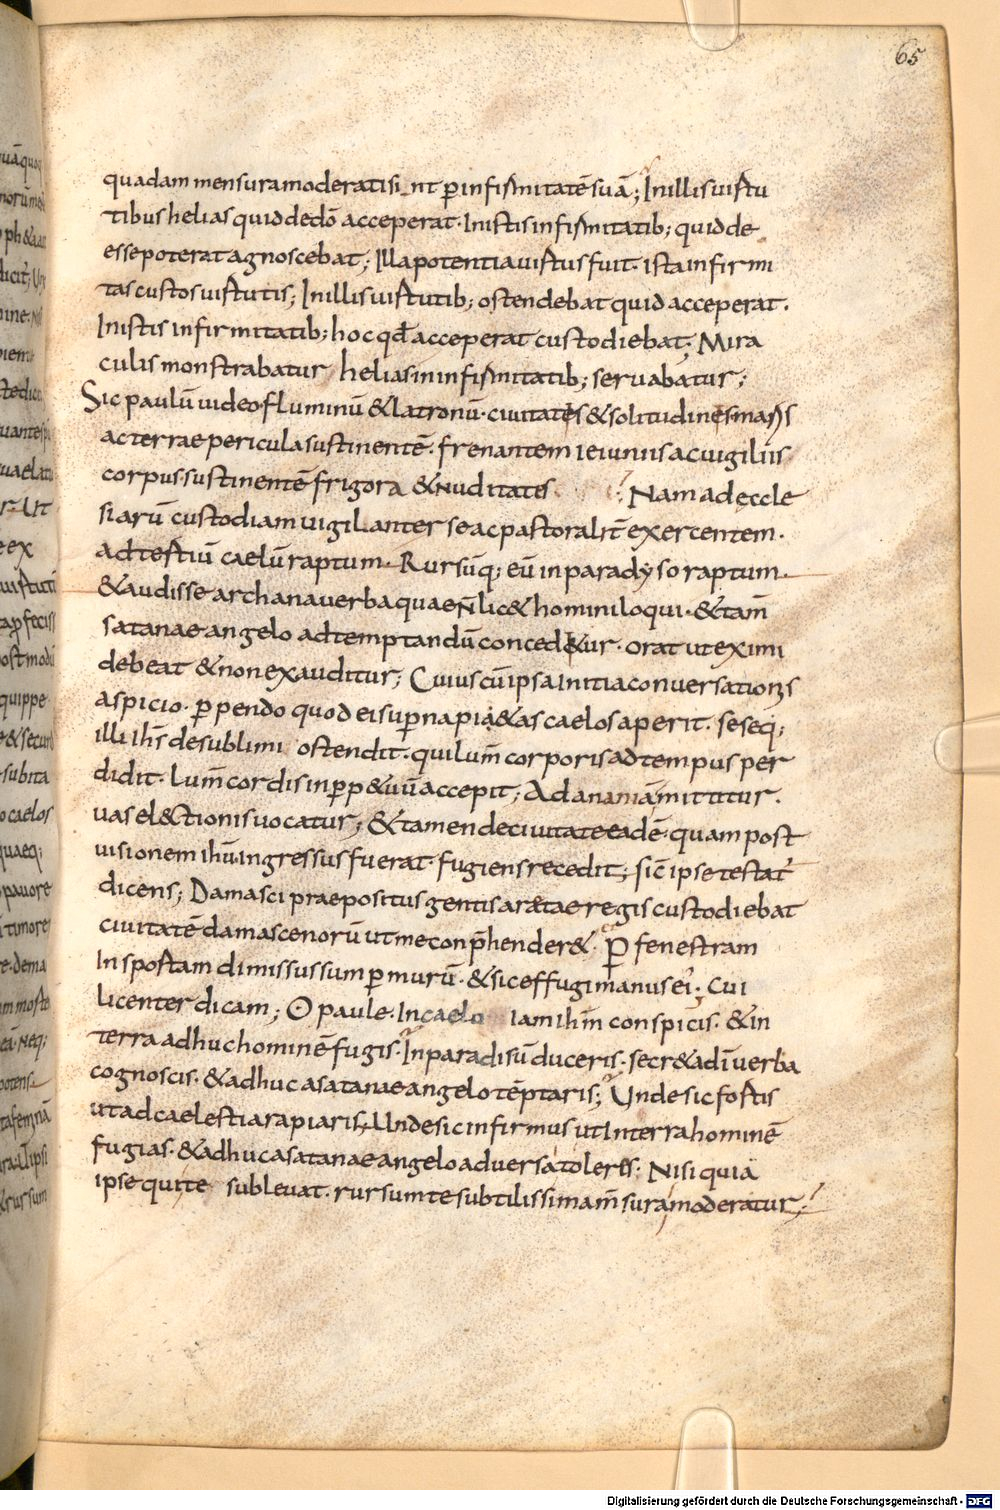 65
quadam mensura moderati si nt ꝑ infirmitatē suā; In illis uirtu
tibus helias quid de dō acceperat. In istis infirmitatib; quid de
esse poterat agnoscebat; Illa potentia uirtus fuit. ista infirmi
tas custos uirtutis; In illis uirtutib; ostendebat quid acceperat.
In istis infirmitatib; hoc qđ acceperat custodiebat; Mira
culis monstrabatur helias in infirmitatib; seruabatur;
Sic paulū uideo fluminū & latronū. ciuitatis & solitudines maris
ac terrae pericula sustinentē. frenantem ieiuniis ac uigiliis
corpus. sustinentē frigora & nuditates Nam ad eccle
siarū custodiam uigilanter se ac pastoralit̄ exercentem.
ad tertiū caelū raptum. Rursūq; eū in paradyso raptum.
& audisse archana uerba quae n̄ lic& homini loqui. & tam̄
satanae angelo ad temptandū conced&ur. orat ut eximi
debeat & non exauditur; Cuius cū ipsa initia conuersationis
aspicio. ꝑpendo quod ei suꝑna pi&as caelos aperit. seseq;
illi ihs̄ de sublimi ostendit. qui lum̄ corporis ad tempus per
didit. lum̄ cordis in ꝑp&uū accepit; Ad ananiā mittitur.
uas el&ctionis uocatur; & tamen de ciuitate eadē. quam post
uisionem ihū ingressus fuerat. fugiens recedit; sic̄ ipse testat̄
dicens; Damasci praepositus gentis aretae regis custodiebat
ciuitatē damascenorū ut me conp̄hender&. Ꝑ fenestram
In sportam dimissus sum ꝑ murū. & sic effugi manus ei; Cui
licenter dicam; O paule. In caelo iam ihm̄ conspicis. & in
terra adhuc hominē fugis. In paradisū duceris. secr&a dī uerba
cognoscis. & adhuc a satanae angelo tēptaris; Unde sic fortis
ut ad caelestia rapiaris, Unde sic infirmus ut In terra hominē
fugias. & adhuc a satanae angelo aduersa toleres. Nisi quia
ipse qui te subleuat. rursum te subtilissima m̄sura moderatur;
Digitalisierung gefördert durch die Deutsche Forschungsgemeinschaft - DFG